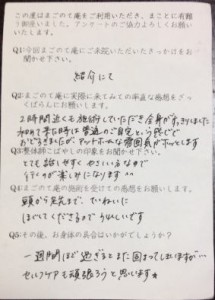 この度はまごのて庵をご利用いただき、まことに有難
う御座いました。アンケートのご協力よろしくお願
いいたします。
Q1:今回まごのて庵にご来院いただいたきっかけをお
聞かせ下さい。
紹介にて
Q2:まごのて庵に実際に来てみての率直な感想をざっ
くばらんにお聞かせ下さい。
2時間近くも施術していただき全身がすっきりしました
初めて来た時は普通のご自宅という感じで
おどろきましたが アットホームな雰囲気がホッとします
Q3:整体師こばやしの印象をお聞かせ下さい。
とても話しやすく やさしい方なので
行くのが楽しみになります
Q4:まごのて庵の施術を受けての感想をお願いします。
頭から足先まで、ていねいに
ほぐしてくださるので うれしいです
Q5:その後、お身体の具合はいかがでしょうか?
一週間ほど過ぎるとまた固まってしまいますが…
セルフケアも頑張ろうと思います★